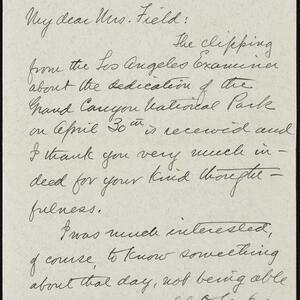 My dear Mrs. Field:
The clipping
from the Los Angeles Examiner
about the dedication of the
Grand Canyon National Park
on April 30th is received and
I thank you very much in-
deed for your kind thought-
fulness.
I was much interested,
of course, to know something
about that day, not being able